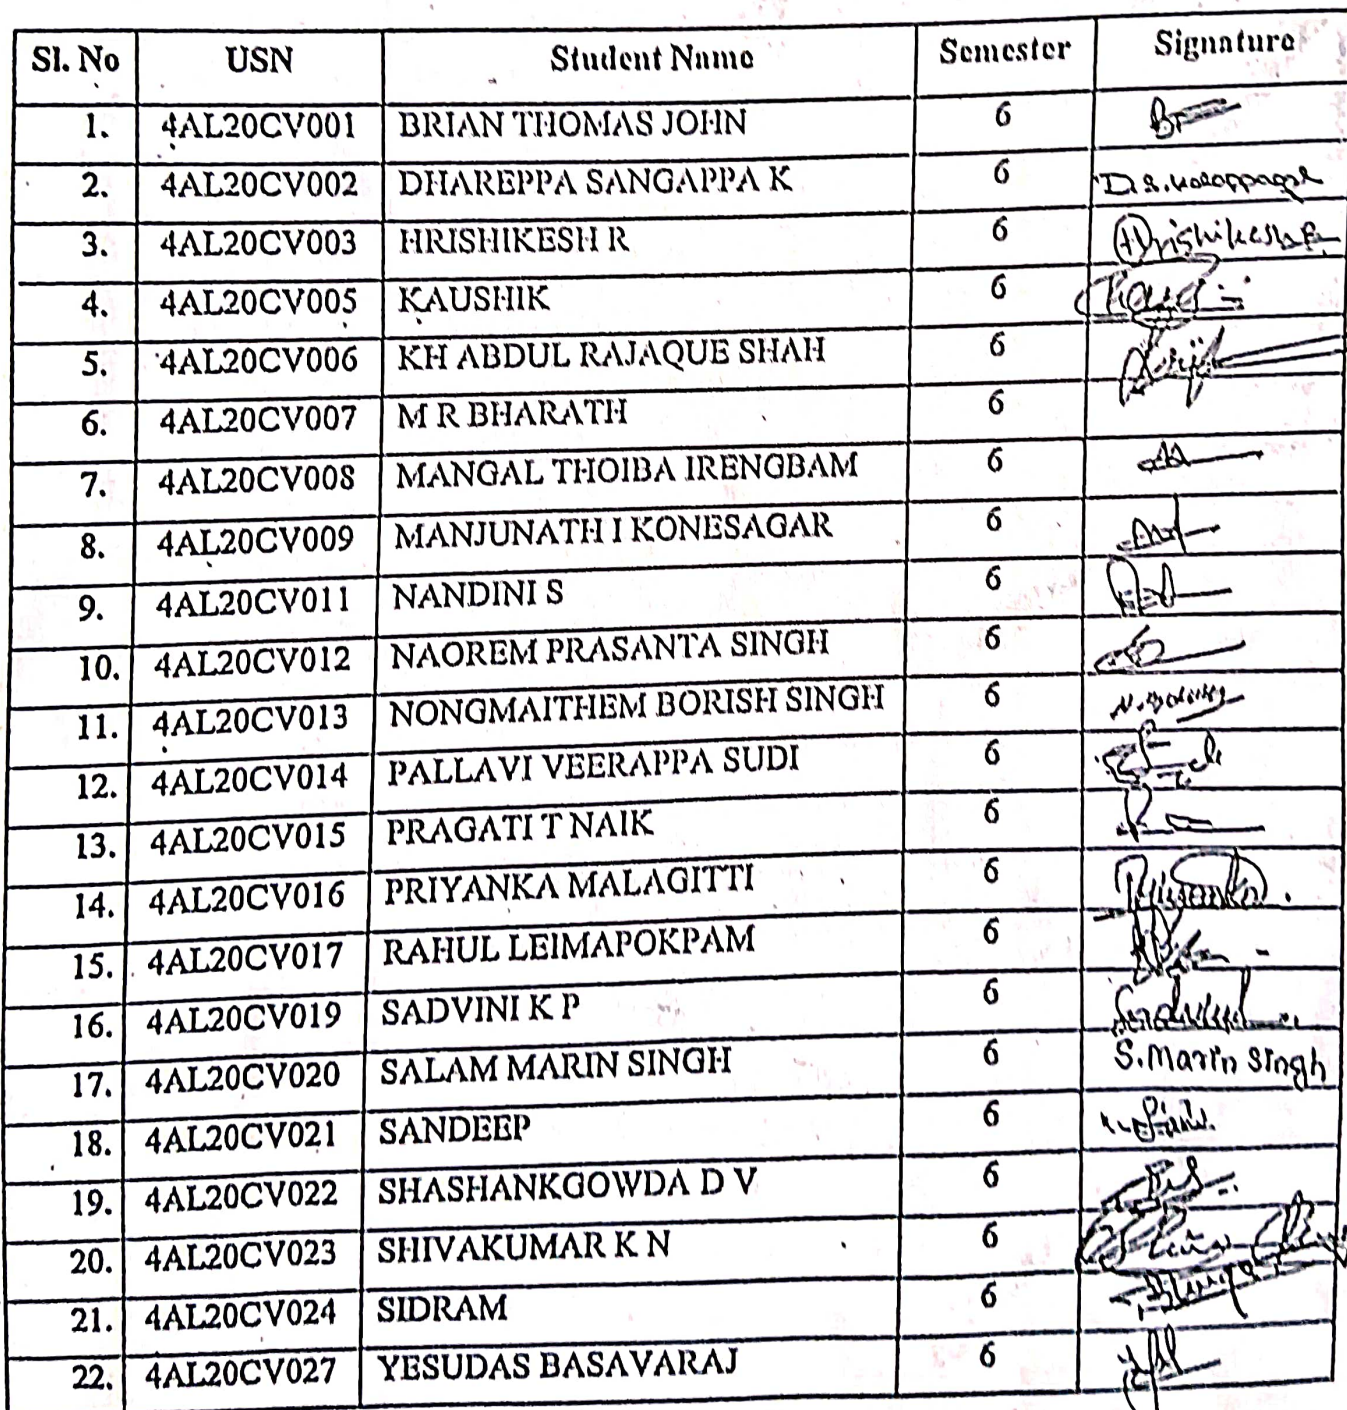 Sl. No USN Student Name Semester Signature
1. 4AL20CV001 BRIAN THOMAS JOHN 6
2. 4AL20CV002 DHAREPPA SANGAPPA K 6 D.S.
3. 4AL20CV003 HRISHIKESH R 6 Hrishikesh R
4. 4AL20CV005 KAUSHIK 6
5. 4AL20CV006 KH ABDUL RAJAQUE SHAH 6
6. 4AL20CV007 M R BHARATH 6
7. 4AL20CV008 MANGAL THOIBA IRENGBAM 6
8. 4AL20CV009 MANJUNATH I KONESAGAR 6
9. 4AL20CV011 NANDINI S 6
10. 4AL20CV012 NAOREM PRASANTA SINGH 6
11. 4AL20CV013 NONGMAITHEM BORISH SINGH 6
12. 4AL20CV014 PALLAVI VEERAPPA SUDI 6
13. 4AL20CV015 PRAGATI T NAIK 6
14. 4AL20CV016 PRIYANKA MALAGITTI 6
15. 4AL20CV017 RAHUL LEIMAPOKPAM 6
16. 4AL20CV019 SADVINI K P 6
17. 4AL20CV020 SALAM MARIN SINGH 6 S. Marin Singh
18. 4AL20CV021 SANDEEP 6
19. 4AL20CV022 SHASHANKGOWDA D V 6
20. 4AL20CV023 SHIVAKUMAR K N 6
21. 4AL20CV024 SIDRAM 6
22. 4AL20CV027 YESUDAS BASAVARAJ 6